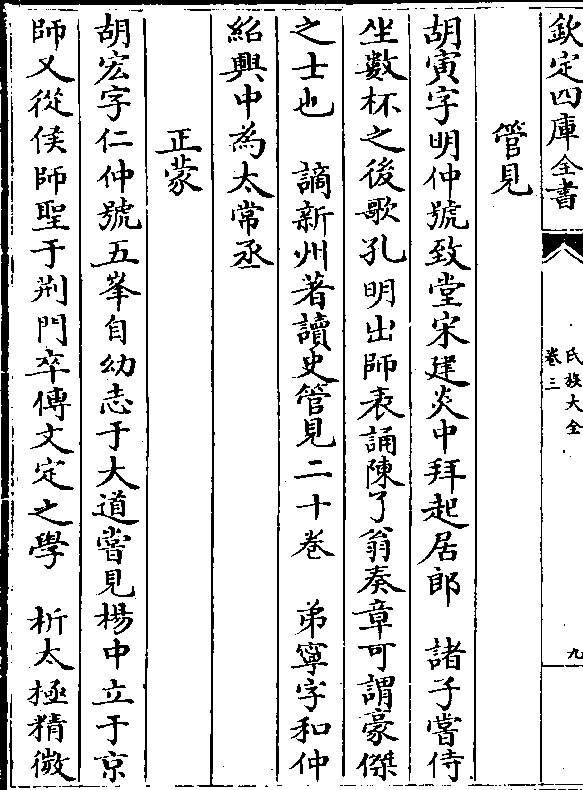 欽定四庫全書
氏族大全
卷三
九
管見
胡寅字明仲號致堂宋建炎中拜起居郎　諸子嘗侍
坐數杯之後歌孔明出師表誦陳了翁奏章可謂豪傑
之士也　謫新州著讀史管見二十卷　弟寧字和仲
紹興中為太常丞
正蒙
胡宏字仁仲號五峯自幼志于大道嘗見楊中立于京
師又從侯師聖于荆門卒傳文定之學　析太極精微